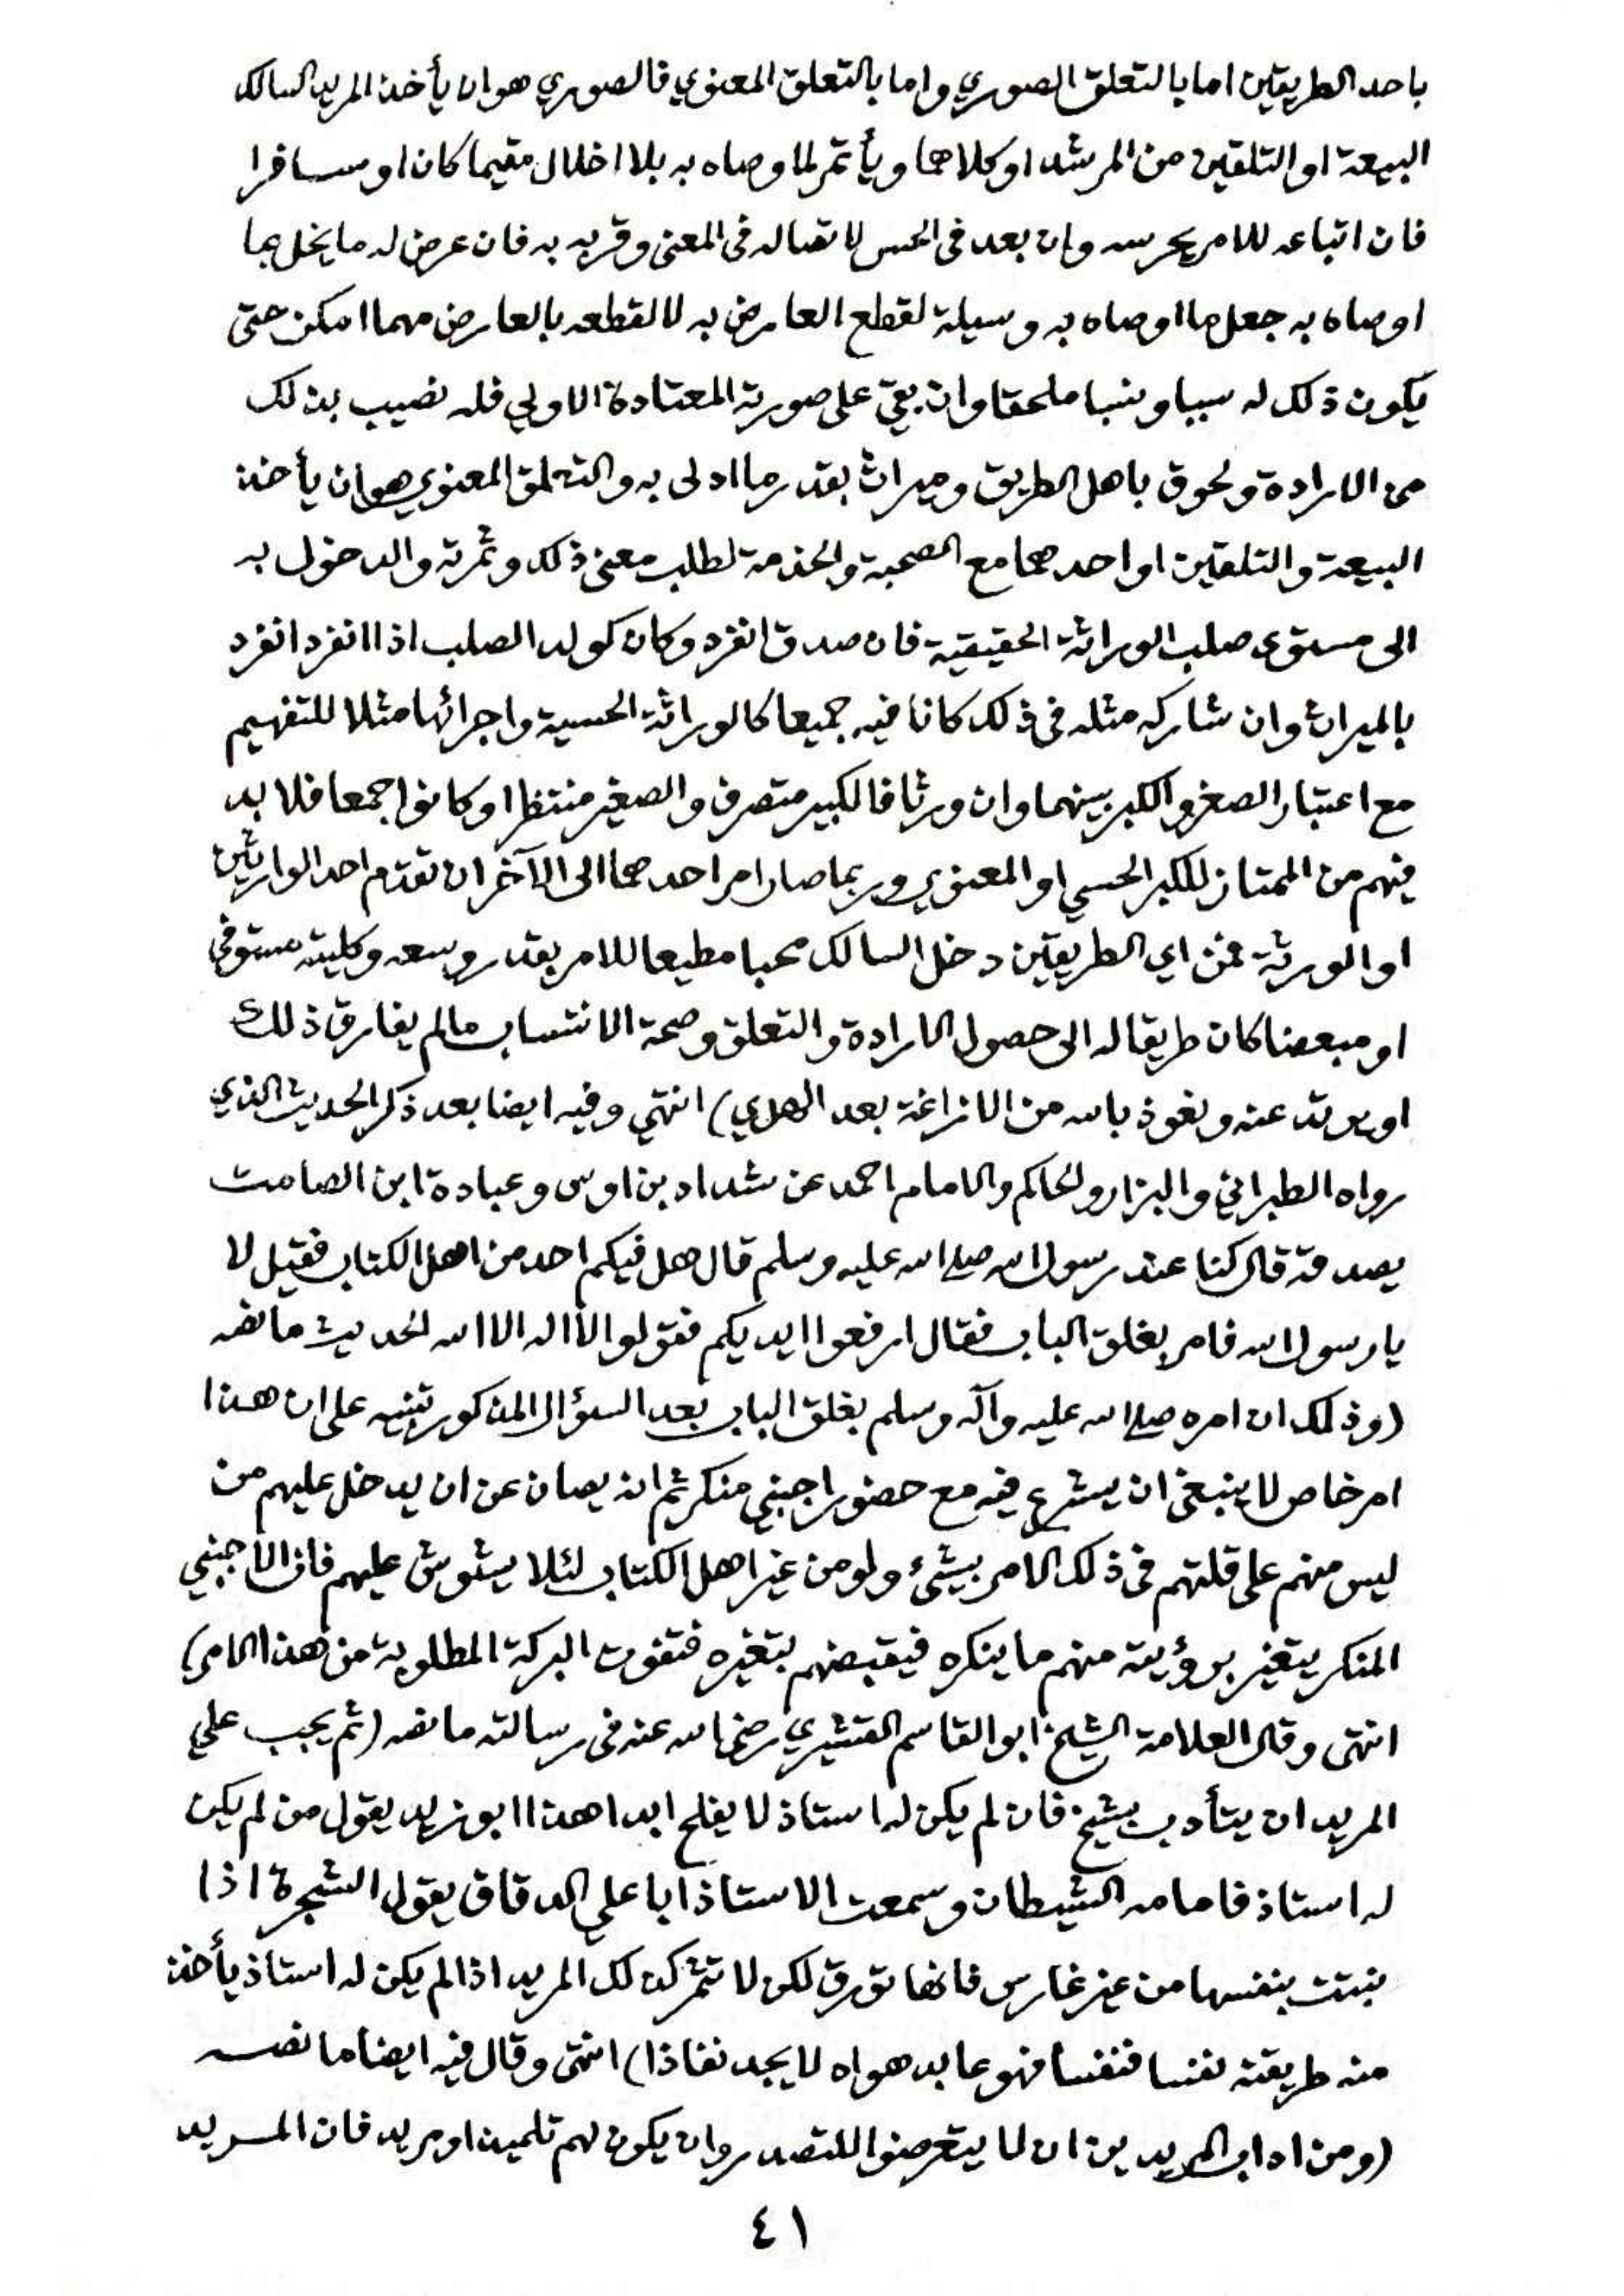 باحد الطريقين اما بالتعلق الصوري واما بالتعلق المعنوي فالصوري هو ان يأخذ المريد السالك
البيعة او التلقين من المرشد او كلاهما ويأتمر لما وصاه به بلا اخلال مقيما كان او مسافرا
فان اتباعه للامر يحرسه وان بعد في الحس لاتصاله في المعنى وقربه به فان عرض له ما يخل بما
اوصاه به جعل ما اوصاه به وسيلة لقطع العارض به لا لقطعه بالعارض مهما امكن حتى
يكون ذلك له سببا ونسبا ملحقا وان بقي على صورته المعتادة الاولي فله نصيب بذلك
من الارادة ولحوق باهل الطريق وميراث بقدر ما ادلى به والتعلق المعنوي هو ان يأخذ
البيعة والتلقين او احدهما مع الصحبة والخدمة لطلب معنى ذلك وثمرته والدخول به
الى مستوى صلب الوراثة الحقيقية فان صدق انفرد وكان كولد الصلب اذا انفرد انفرد
بالميراث وان شاركه مثله في ذلك كانا فيه جميعا كالوراثة الحسية واجرائها مثلا للتفهيم
مع اعتبار الصغر والكبر بينهما وان ورثا فالكبير متصرف والصغير منتظر او كانوا جمعا فلا بد
فيهم من الممتاز للكبر الحسي او المعنوي وربما صار امر احدهما الى الآخر ان تقدم احد الوارثين
او الورثة فمن اي الطريقين دخل السالك محبا مطيعا للامر بقدر وسعه وكليته مستوفي
او مبعضا كان طريقا له الى حصول الارادة والتعلق وصحة الانتساب ما لم يفارق ذلك
او يرتد عنه ونعوذ بالله من الازاغة بعد الهدي) انتهي وفيه ايضا بعد ذكر الحديث الذي
رواه الطبراني والبزار والحاكم والامام احمد عن شداد بن اوس وعبادة ابن الصامت
يصدقه قال كنا عند رسول الله صلى الله عليه وسلم قال هل فيكم احد من اهل الكتاب فقيل لا
يا رسول الله فامر بغلق الباب فقال ارفعوا ايديكم فقولوا لا اله الا الله الحديث ما نصه
(وذلك ان امره صلى الله عليه وآله وسلم بغلق الباب بعد السؤال المذكور تنبيه على ان هذا
امر خاص لا ينبغي ان يشرع فيه مع حضور اجنبي منكر ثم انه يصان عن ان يدخل عليهم من
ليس منهم على قلتهم في ذلك الامر بشئ ولو من غير اهل الكتاب لئلا يشوش عليهم فان الاجنبي
المنكر يتغير برؤيته منهم ما ينكره فيقبضهم بتغيره فتفوت البركة المطلوبة من هذا الامر)
انتهى وقال العلامة الشيخ ابو القاسم القشيري رضي الله عنه في رسالته ما نصه (ثم يجب علي
المريد ان يتأدب بشيخ فان لم يكن له استاذ لا يفلح ابدا هذا ابو زيد يقول من لم يكن
له استاذ فامامه الشيطان وسمعت الاستاذ ابا علي الدقاق يقول الشجرة اذا
نبتت بنفسها من غير غارس فانها تورق لكن لا تثمر كذلك المريد اذا لم يكن له استاذ يأخذ
منه طريقته نفسا فنفسا فهو عابد هواه لا يجد نفاذا) انتهى وقال فيه ايضا ما نصه
(ومن اداب المريدين ان لا يتعرضوا للتصدر وان يكون لهم تلميذ او مريد فان المريد
٤١